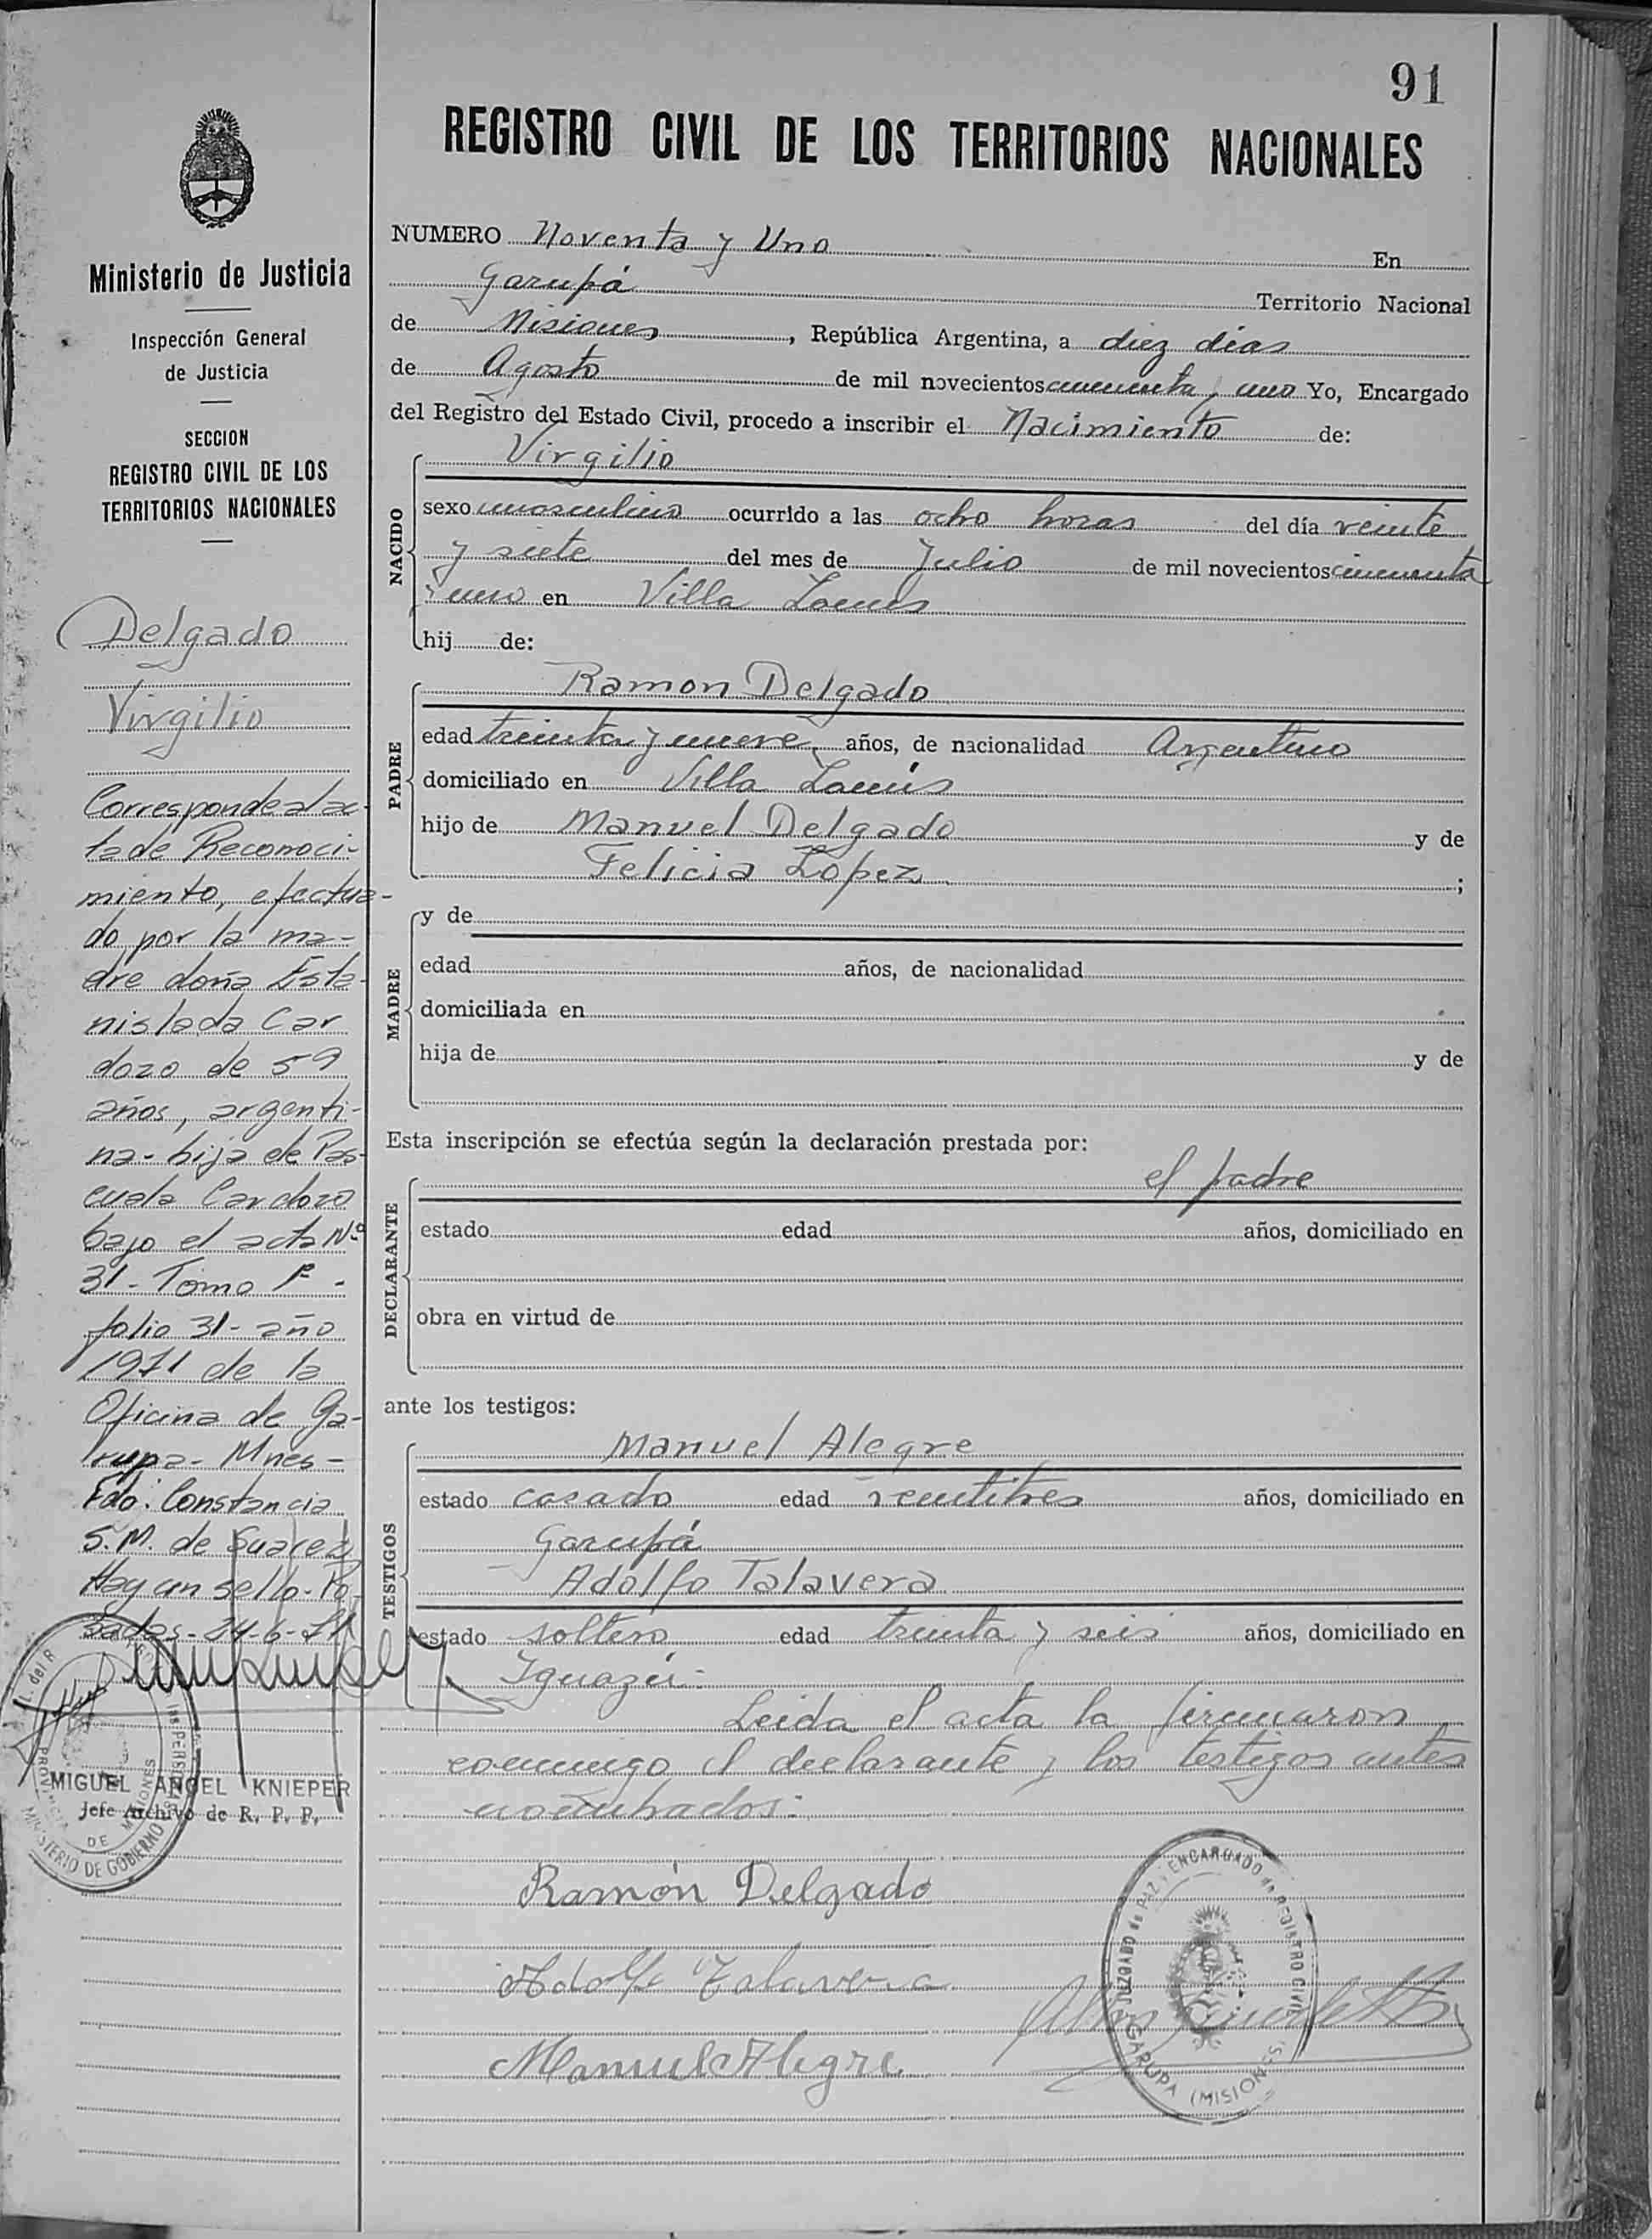 91
REGISTRO CIVIL DE LOS TERRITORIOS NACIONALES
Ministerio de Justicia
Inspección General
de Justicia
SECCION
REGISTRO CIVIL DE LOS
TERRITORIOS NACIONALES
Delgado
Virgilio
Corresponde al ac-
ta de Reconoci-
miento, efectua-
do por la ma-
dre doña Esta-
nislada Car
dozo de 59
años, argenti-
na - hija de Pas-
cuala Cardozo
bajo el acta Nº
31 - Tomo Iº -
folio 31 - año
1971 de la
Oficina de Ga-
rupa - Mnes -
Fdo: Constancia
S.M. de Suarez
Hay un sello - Po
sadas - 24-6-71
MIGUEL ANGEL KNIEPER
Jefe Archivo de R. P. P.
PROVINCIA DE MISIONES
MINISTERIO DE GOBIERNO
NUMERO Noventa y Uno En
Garupá Territorio Nacional
de Misiones, República Argentina, a diez días
de Agosto de mil novecientos cincuenta y uno Yo, Encargado
del Registro del Estado Civil, procedo a inscribir el Nacimiento de:
NACIDO
Virgilio
sexo masculino ocurrido a las ocho horas del día veinte
y siete del mes de Julio de mil novecientos cincuenta
y uno en Villa Lanús
hij de:
PADRE
Ramon Delgado
edad treinta y nueve años, de nacionalidad Argentino
domiciliado en Villa Lanús
hijo de Manuel Delgado y de
Felicia Lopez ;
MADRE
y de
edad años, de nacionalidad
domiciliada en
hija de y de
Esta inscripción se efectúa según la declaración prestada por:
DECLARANTE
el padre
estado edad años, domiciliado en
obra en virtud de
ante los testigos:
TESTIGOS
Manuel Alegre
estado casado edad veintitres años, domiciliado en
Garupá
Adolfo Talavera
estado soltero edad treinta y seis años, domiciliado en
Iguazú.
Leida el acta la firmaron
conmigo el declarante y los testigos antes
nombrados:
Ramón Delgado
Adolfo Talavera
Manuel Alegre
JUZGADO de PAZ y ENCARGADO de REGISTRO CIVIL
GARUPA (MISIONES)